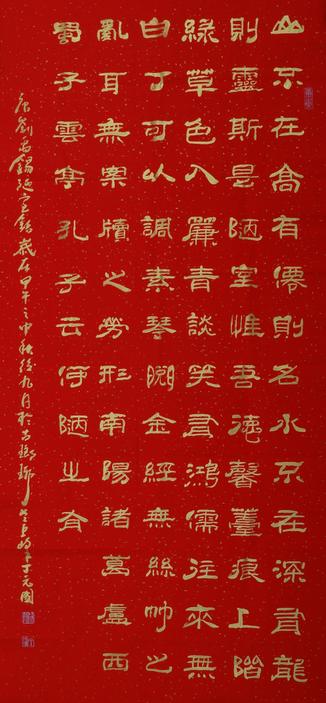 山不在高有僊則名水不在深有龍
則靈斯是陋室惟吾德馨薹痕上階
綠草色入簾青談笑有鴻儒往來無
白丁可以調素琴閱金經無絲竹之
亂耳無案牘之勞形南陽諸葛廬西
蜀子雲亭孔子云何陋之有
唐劉禹錫陋室銘歲在甲午之中秋後九月於古